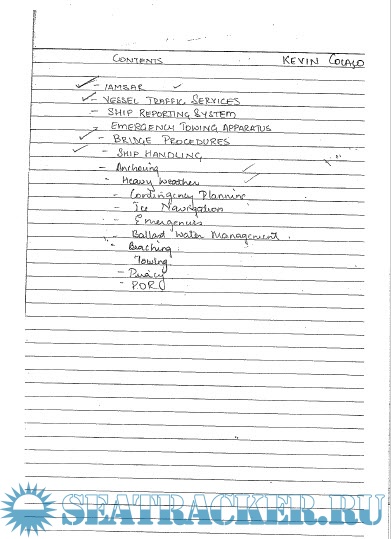 CONTENTS KEVIN COLACO
- IAMSAR
- VESSEL TRAFFIC SERVICES
- SHIP REPORTING SYSTEM
- EMERGENCY TOWING APPARATUS
- BRIDGE PROCEDURES
- SHIP HANDLING
- Anchoring
- Heavy weather
- Contingency Planning
- Ice Navigation
- Emergencies
- Ballast Water Management.
- Beaching
Towing
- Piracy
- POR
SEATRACKER.RU